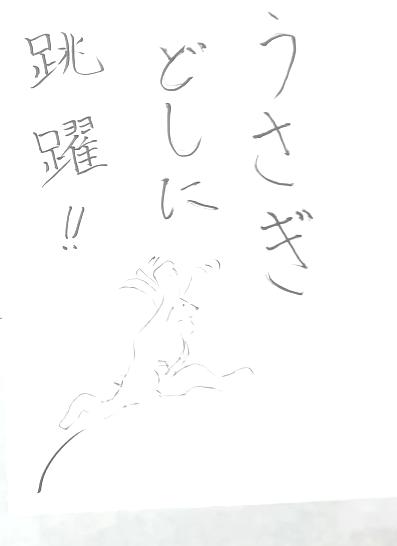 うさぎ
どしに
跳躍!!